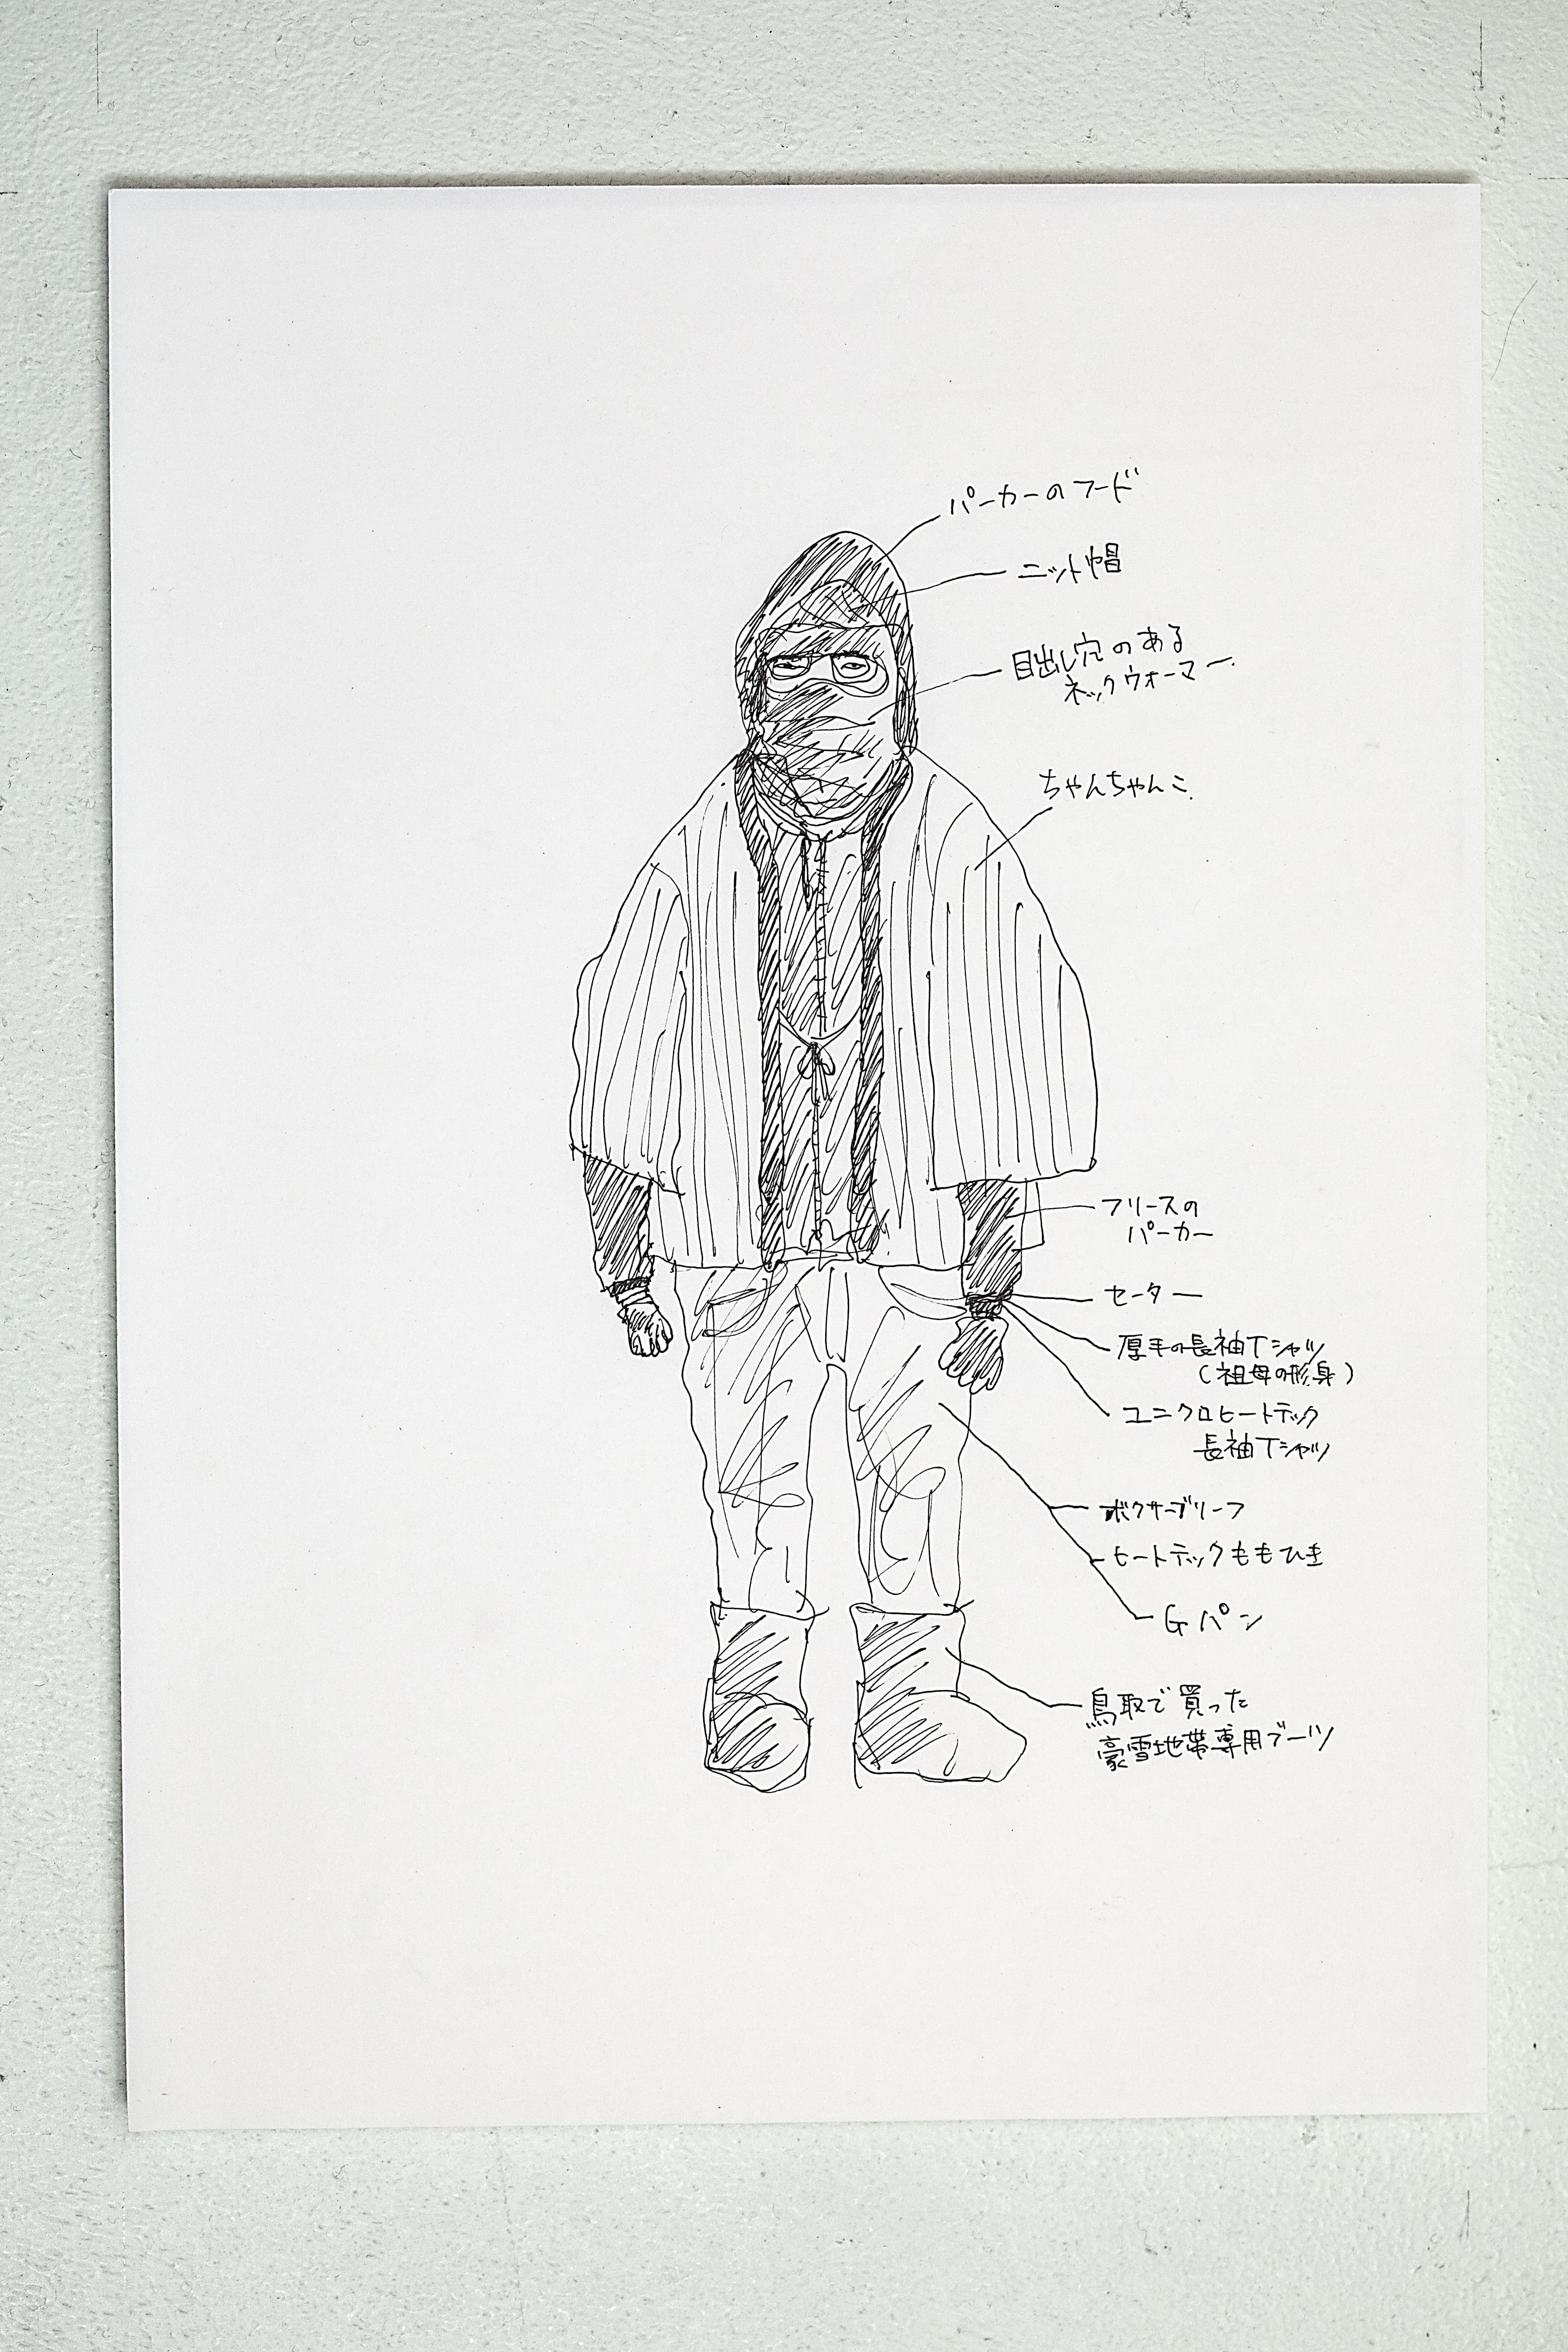 パーカーのフード
ニット帽
目出し穴のある
ネックウォーマー
ちゃんちゃんこ
フリースの
パーカー
セーター
厚手の長袖Tシャツ
(祖母の形身)
ユニクロヒートテック
長袖Tシャツ
ボクサーブリーフ
ヒートテックももひき
Gパン
鳥取で買った
豪雪地帯専用ブーツ